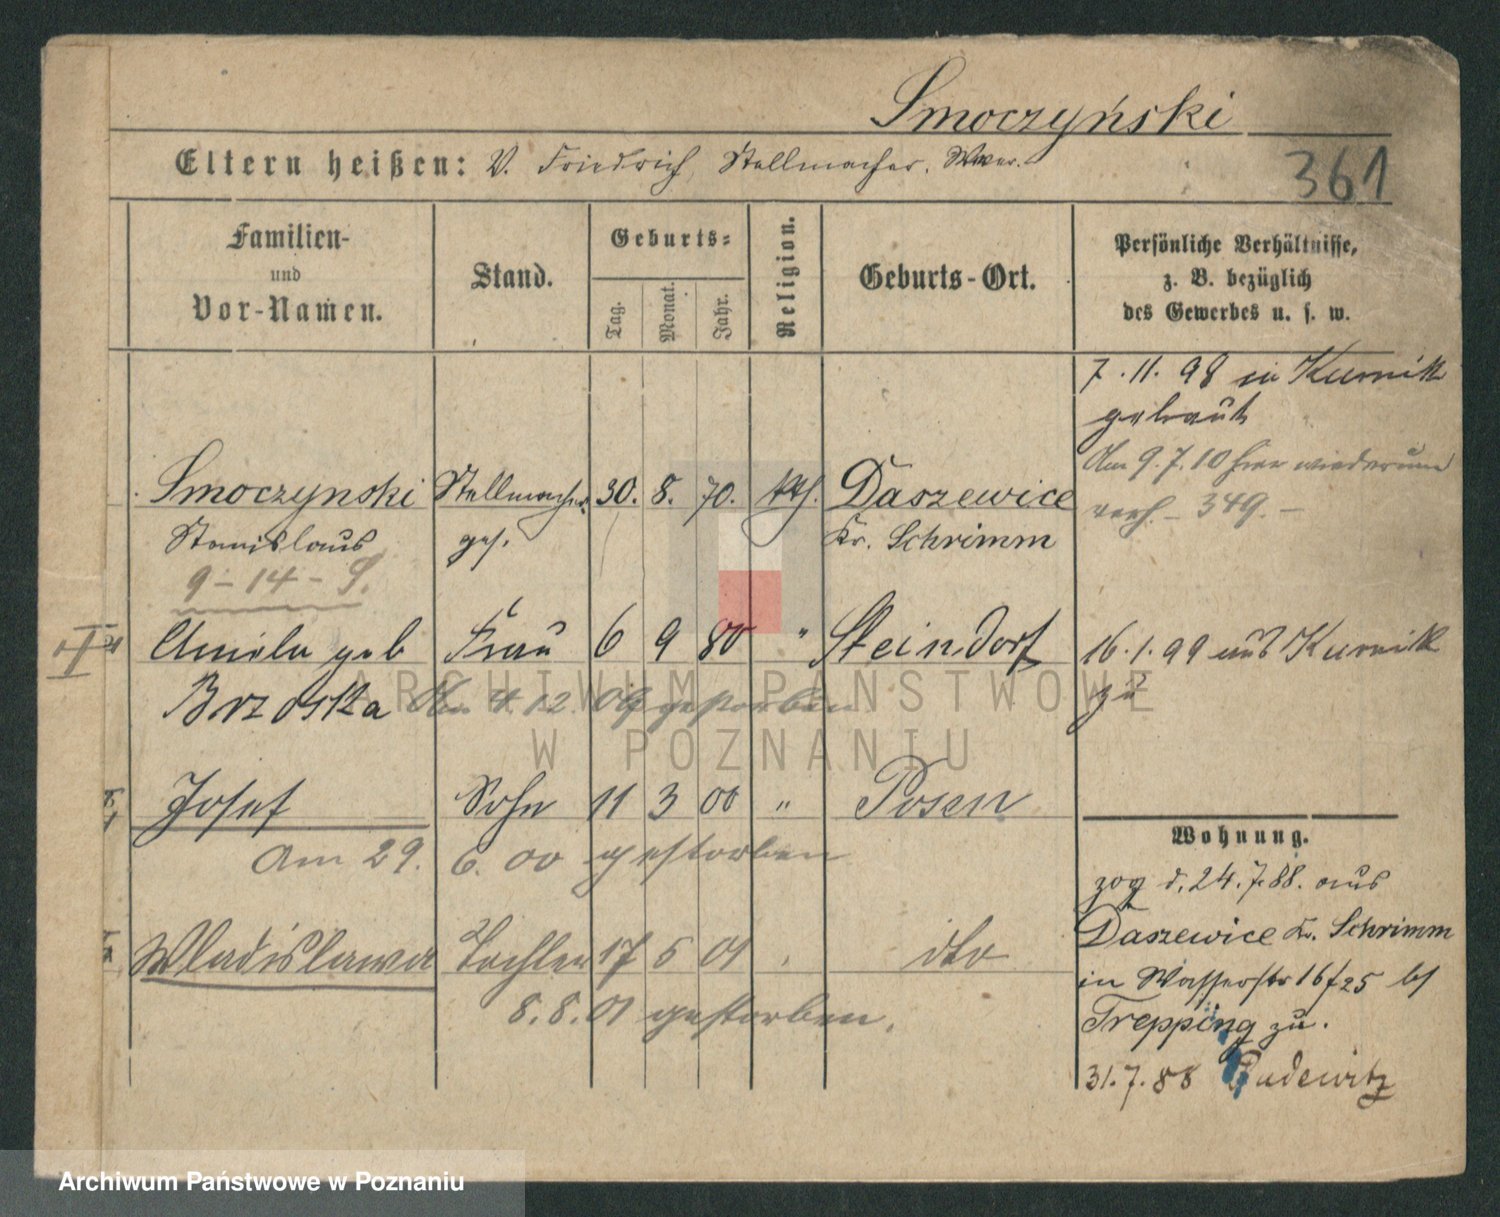 Smoczyński
361
Eltern heißen: V. Friedrich, Stellmacher.
Familien- und Vor-Namen.
Stand.
Geburts-
Tag.
Monat.
Jahr.
Religion.
Geburts-Ort.
Persönliche Verhältnisse,
z. B. bezüglich
des Gewerbes u. s. w.
7.11.98 in Kurnik
getraut
Am 9.7.10 hier wiederum
verh. - 349. -
Smoczynski Stellmacher 30. 8. 70. kth. Daszewice
Stanislaus ges. Kr. Schrimm
9-14-S.
Amela geb Frau 6 9 80 " Steindorf
16.1.99 aus Kurnik
zu
Brzoska Am 4.12.09 gestorben
Josef Sohn 11 3 00 " Posen
Am 29. 6. 00 gestorben
Wladislawa Tochter 17 5 01 dto
8.8.01 gestorben.
Wohnung.
zog d. 24.7.88. aus
Daszewice Kr. Schrimm
in Wasserstr 16/25 bei
Trepping zu.
31.7.88 Pudewitz
ARCHIWUM PAŃSTWOWE
W POZNANIU
Archiwum Państwowe w Poznaniu